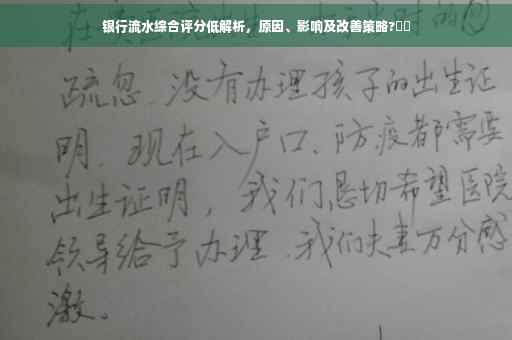 在 时的
银行流水综合评分低解析，原因、影响及改善策略?▯▯
疏忽、没有办理孩子的出生证
明、现在入户口、防疫都需要
出生证明，我们恳切希望医院
领导给予办理、我们夫妻万分感
激。